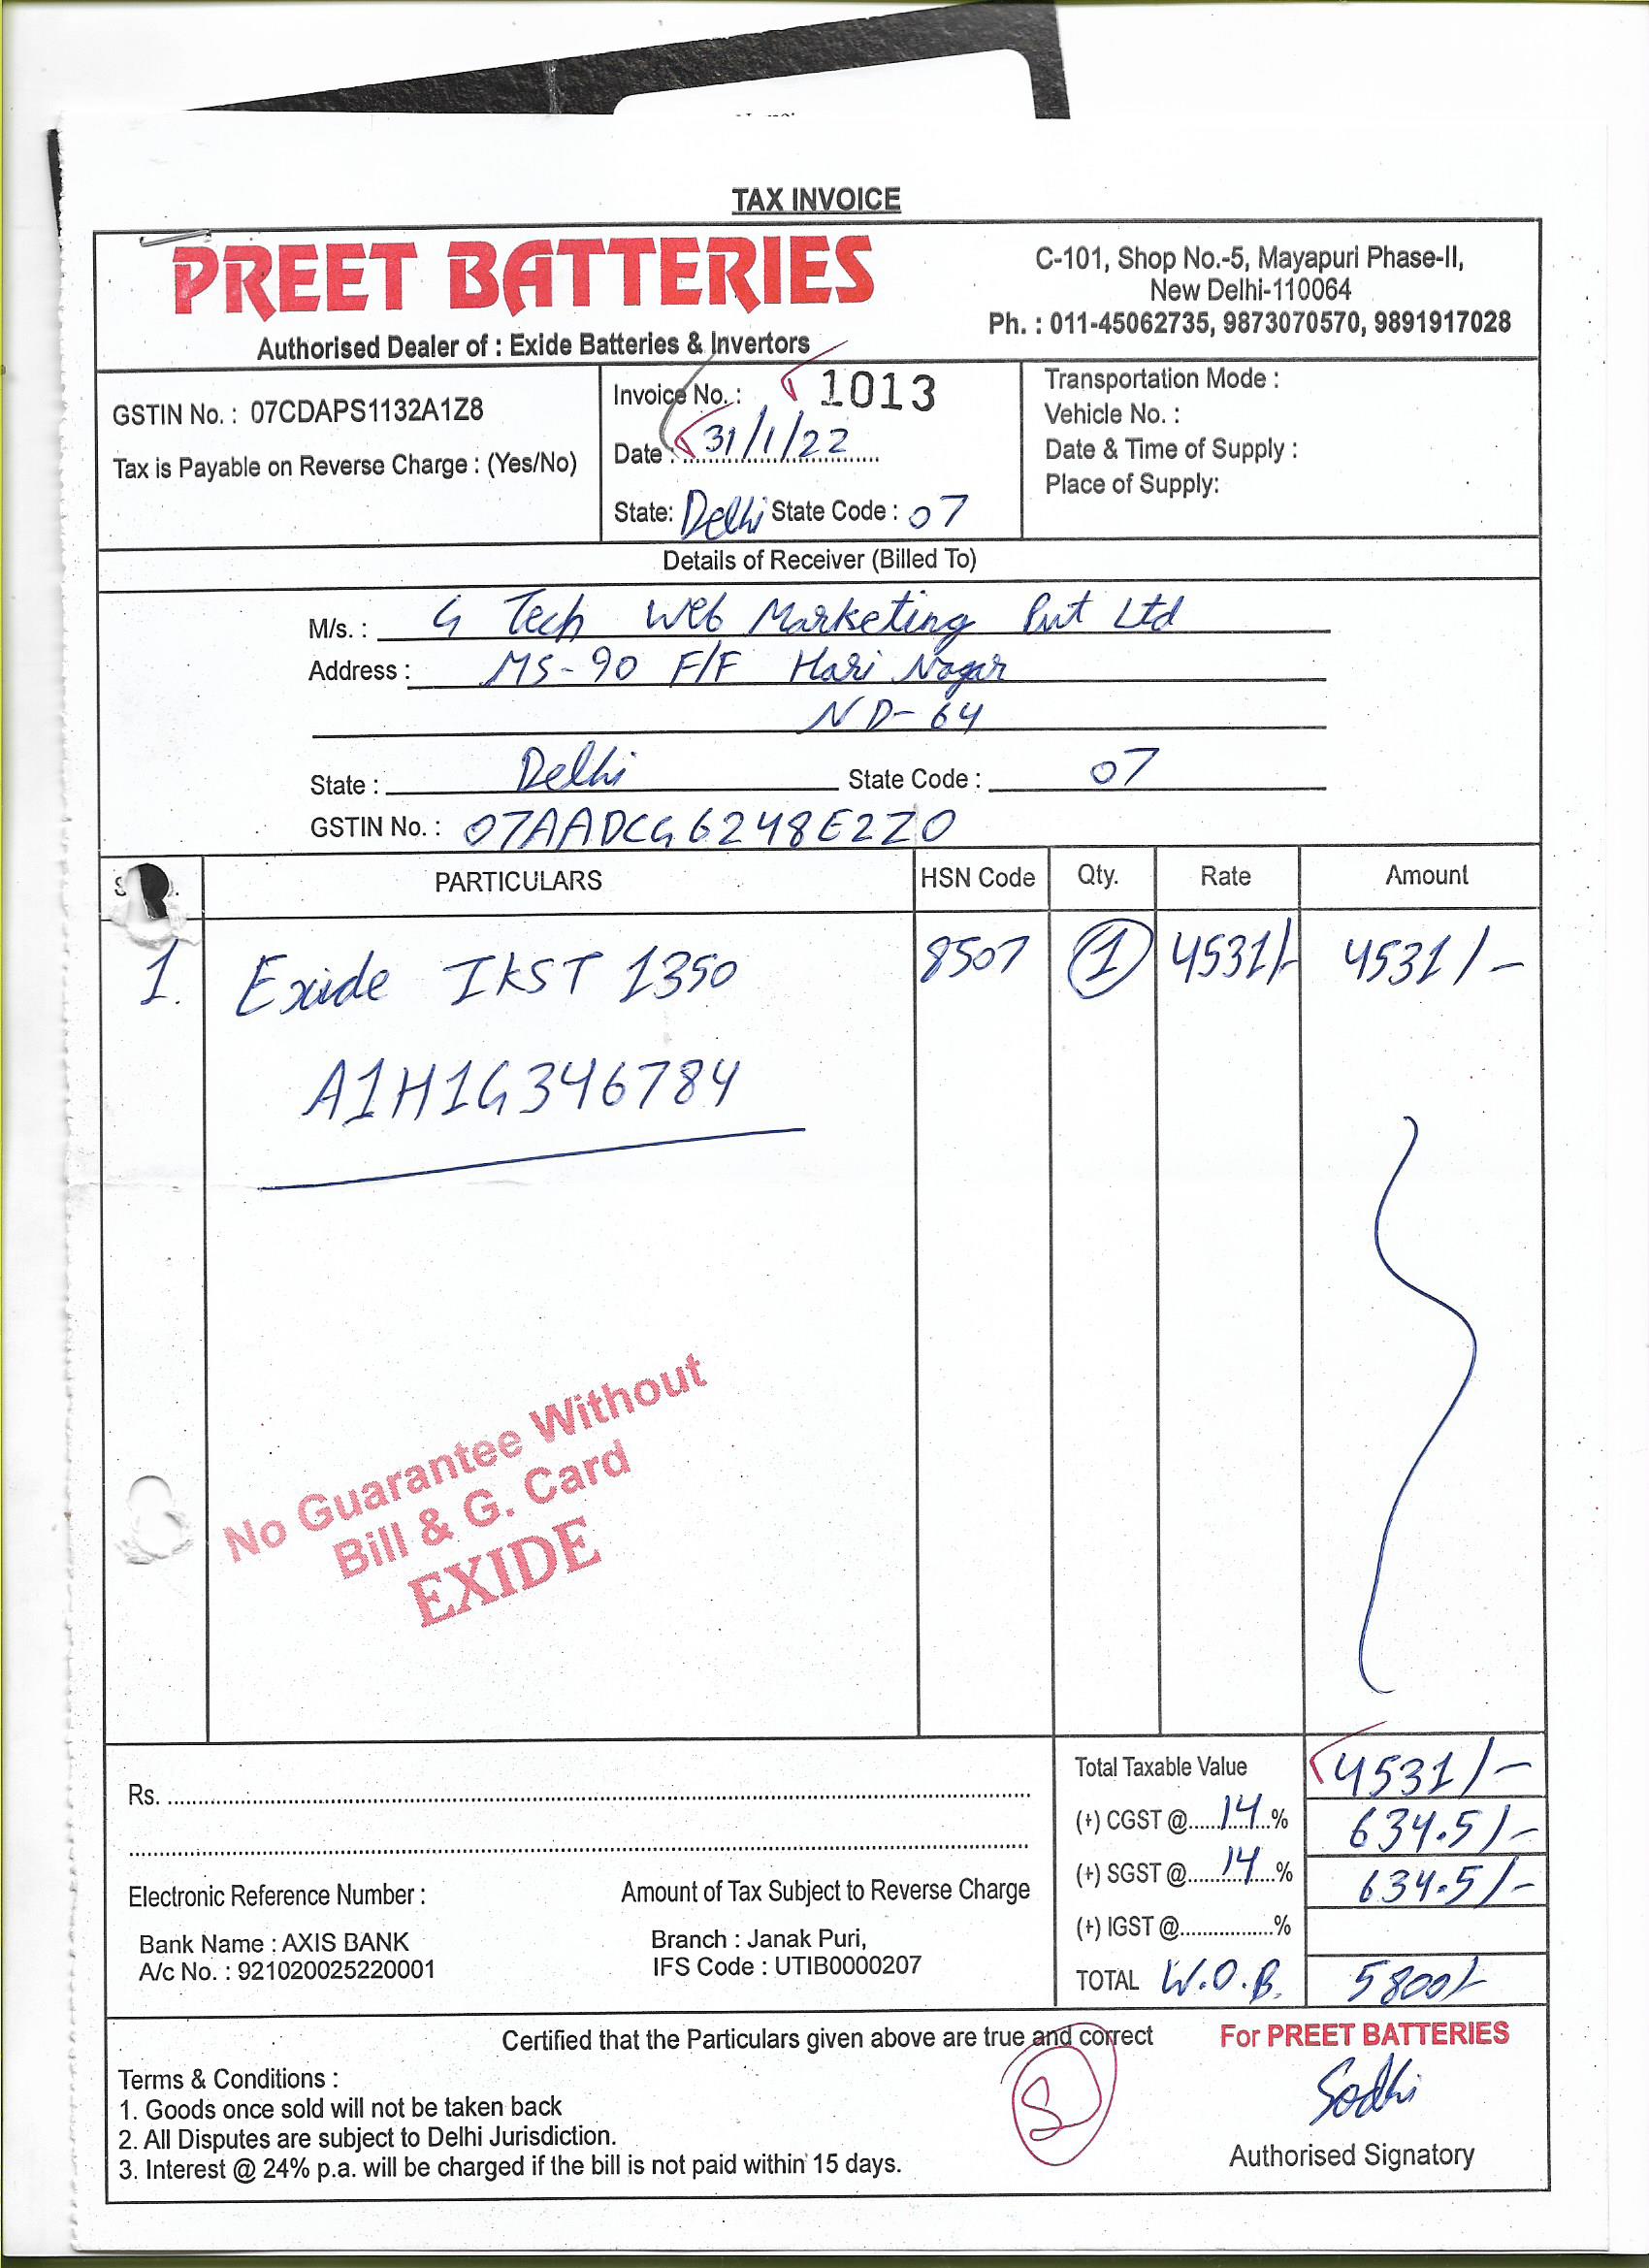 TAX INVOICE
PREET BATTERIES
Authorised Dealer of : Exide Batteries & Invertors
C-101, Shop No.-5, Mayapuri Phase-II,
New Delhi-110064
Ph. : 011-45062735, 9873070570, 9891917028
GSTIN No. : 07CDAPS1132A1Z8
Tax is Payable on Reverse Charge : (Yes/No)
Invoice No. : 1013
Date : 31/1/22
State: Delhi State Code : 07
Transportation Mode :
Vehicle No. :
Date & Time of Supply :
Place of Supply:
Details of Receiver (Billed To)
M/s. : G Tech Web Marketing Pvt Ltd
Address : MS-90 F/F Hari Nagar
ND-64
State : Delhi State Code : 07
GSTIN No. : 07AADCG6248E2ZO
PARTICULARS HSN Code Qty. Rate Amount
1. Exide IKST 1350 8507 1 4531/- 4531/-
A1H1G346784
No Guarantee Without
Bill & G. Card
EXIDE
Rs.
Total Taxable Value 4531/-
(+) CGST @ 14 % 634.5/-
(+) SGST @ 14 % 634.5/-
(+) IGST @ %
TOTAL W.O.B. 5800/-
Electronic Reference Number :
Amount of Tax Subject to Reverse Charge
Bank Name : AXIS BANK
A/c No. : 921020025220001
Branch : Janak Puri,
IFS Code : UTIB0000207
Certified that the Particulars given above are true and correct
For PREET BATTERIES
Sodhi
Authorised Signatory
Terms & Conditions :
1. Goods once sold will not be taken back
2. All Disputes are subject to Delhi Jurisdiction.
3. Interest @ 24% p.a. will be charged if the bill is not paid within 15 days.